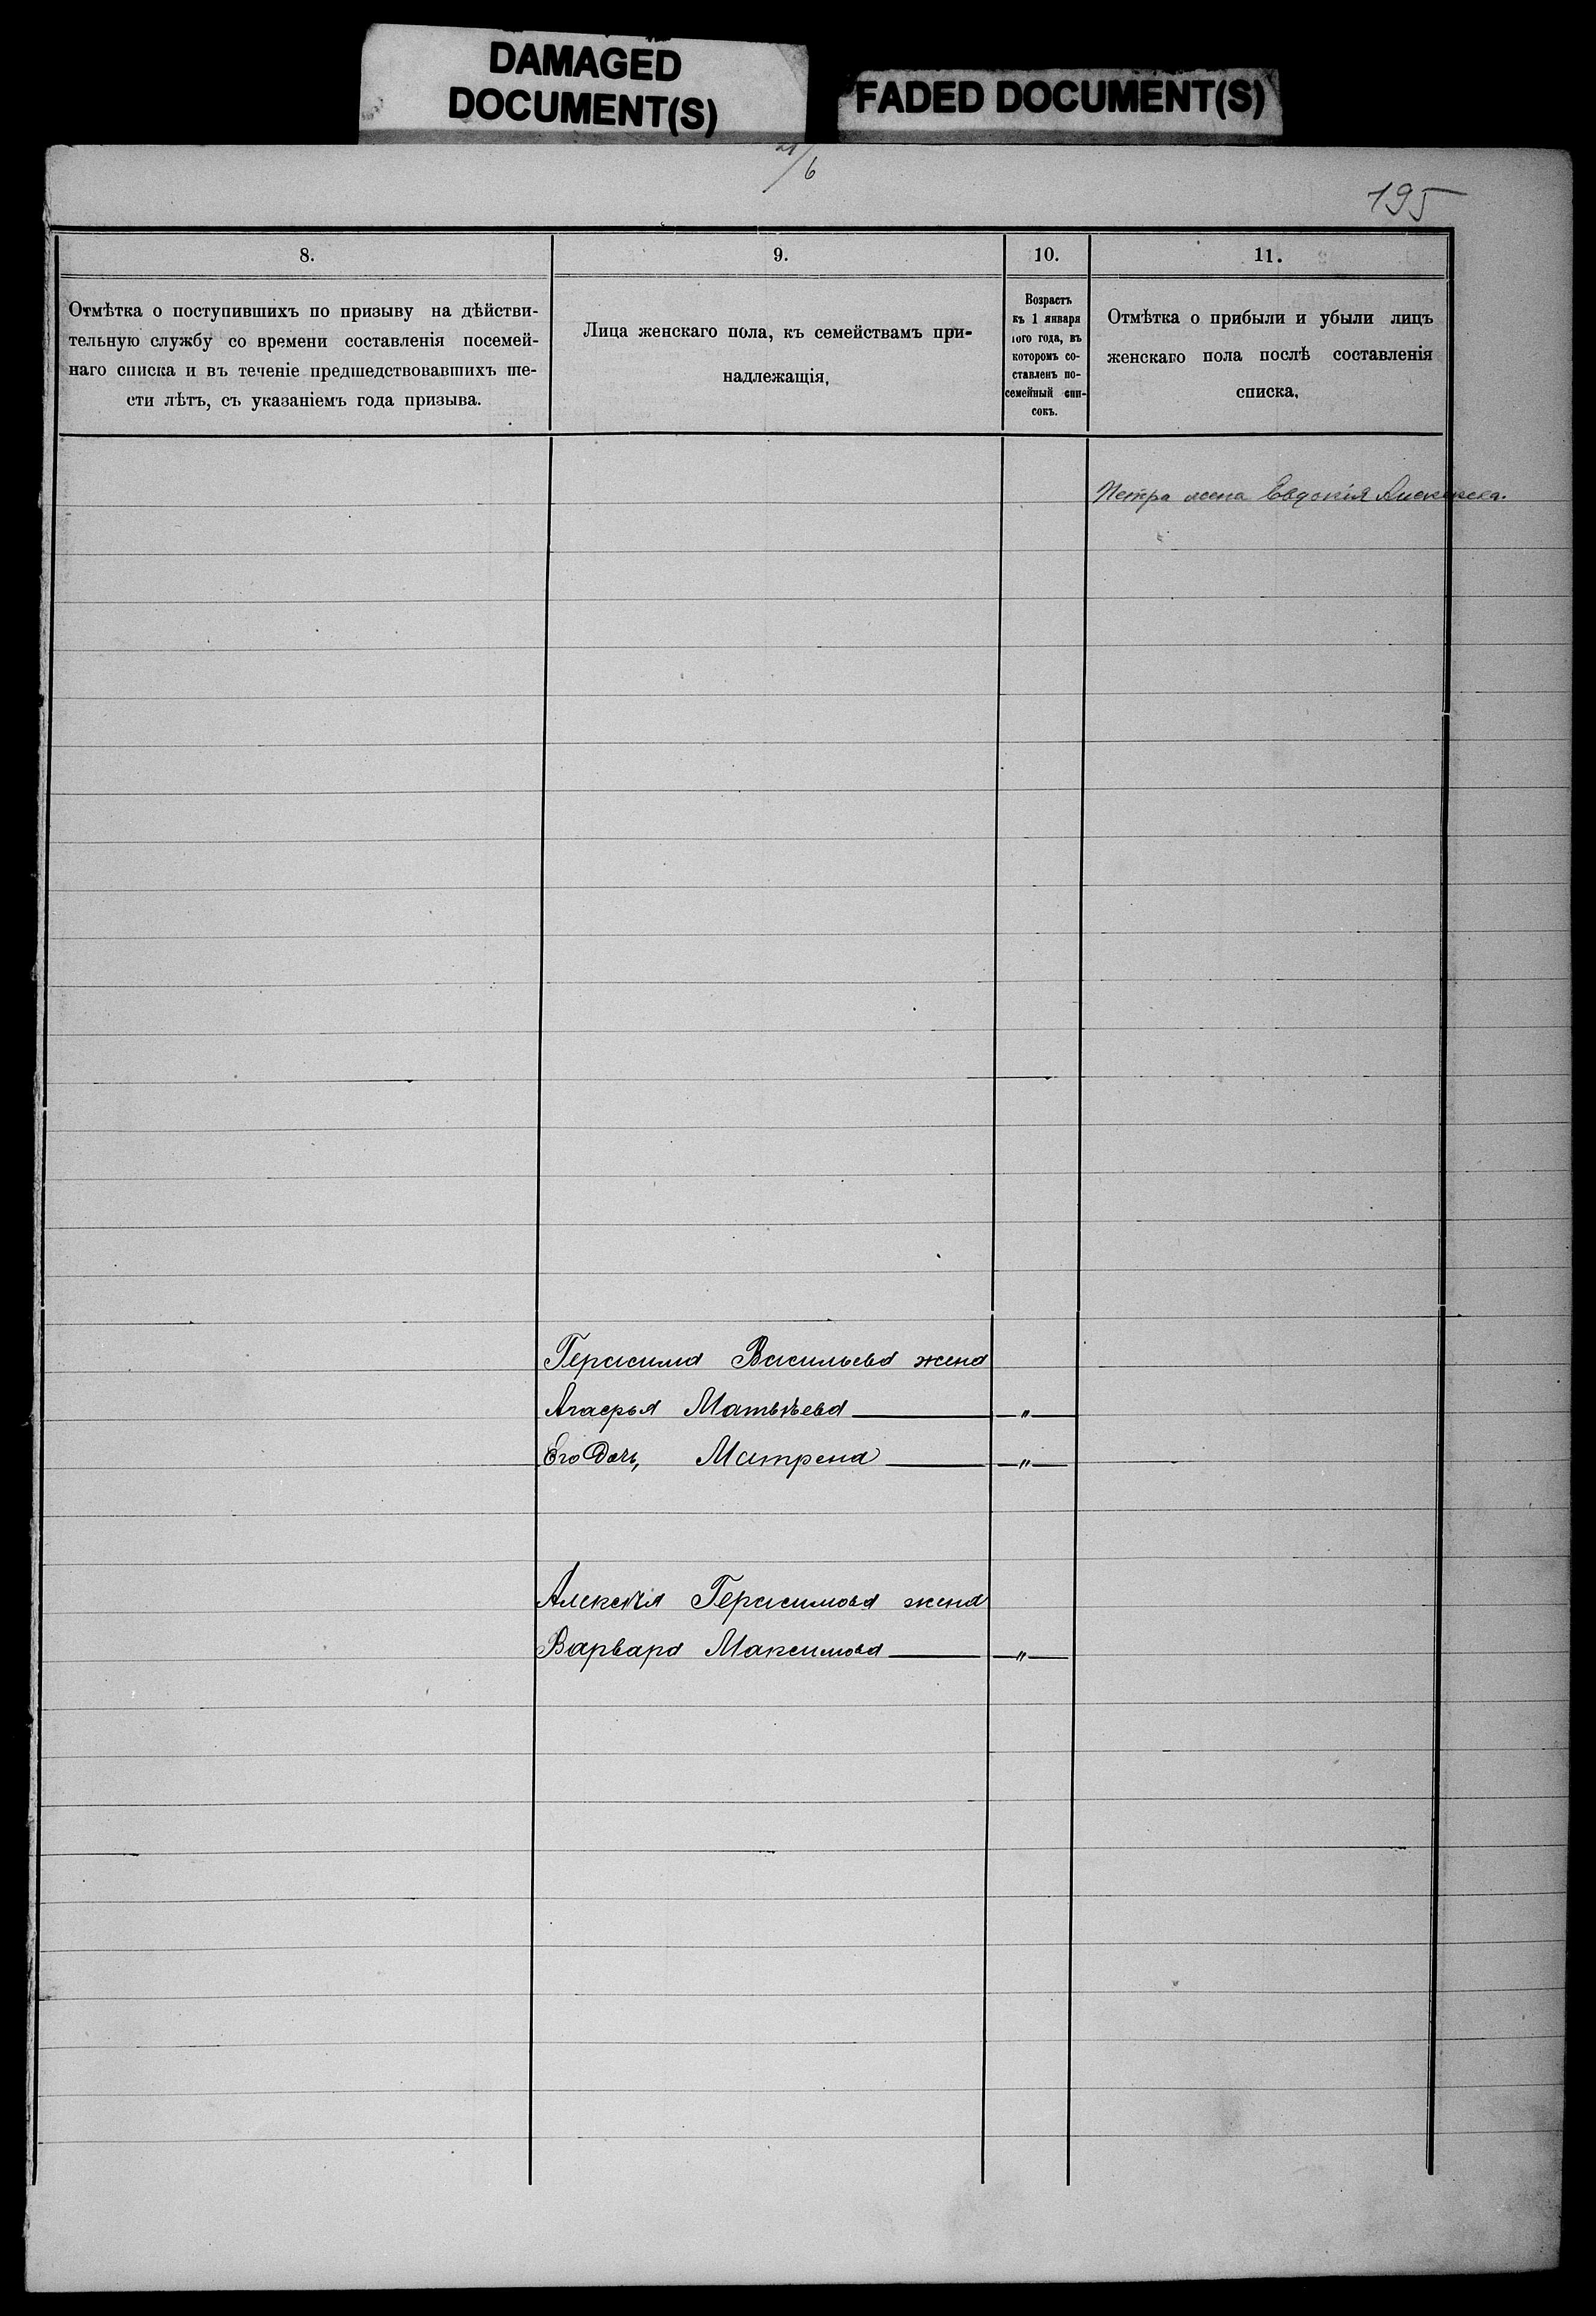 DAMAGED
DOCUMENT(S)
FADED DOCUMENT(S)
/6
195
8.
Отмѣтка о поступившихъ по призыву на дѣйстви-
тельную службу со времени составленія посемей-
наго списка и въ теченіе предшедствовавшихъ ше-
сти лѣтъ, съ указаніемъ года призыва.
9.
Лица женскаго пола, къ семействамъ при-
надлежащія,
10.
Возрастъ
къ 1 января
того года, въ
которомъ со-
ставленъ по-
семейный спи-
сокъ.
11.
Отмѣтка о прибыли и убыли лицъ
женскаго пола послѣ составленія
списка,
Петра жена Евдокія
Герасима Васильева жена
Агафья Матвѣева — „ —
Его Дочь, Матрена — „ —
Алексѣя Герасимова жена
Варвара Максимова — „ —